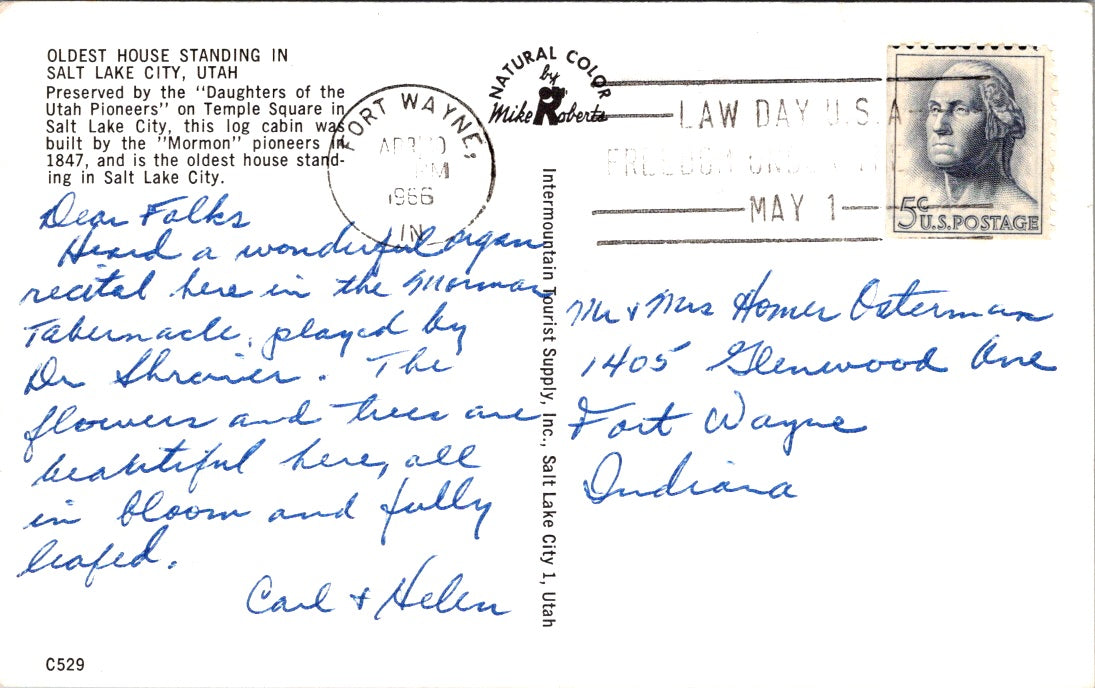 OLDEST HOUSE STANDING IN
SALT LAKE CITY, UTAH
Preserved by the "Daughters of the
Utah Pioneers" on Temple Square in
Salt Lake City, this log cabin was
built by the "Mormon" pioneers in
1847, and is the oldest house stand-
ing in Salt Lake City.
Dear Folks
Heard a wonderful organ
recital here in the Mormon
Tabernacle, played by
Dr Shreiner. The
flowers and trees are
beautiful here, all
in bloom and fully
leafed.
Carl & Helen
C529
FORT WAYNE,
APR 30
PM
1966
IN
NATURAL COLOR
by
Mike Roberts
LAW DAY U.S.A
FREEDOM UNDER
MAY 1
5c U.S. POSTAGE
Intermountain Tourist Supply, Inc., Salt Lake City 1, Utah
Mr & Mrs Homer Osterman
1405 Glenwood Ave
Fort Wayne
Indiana